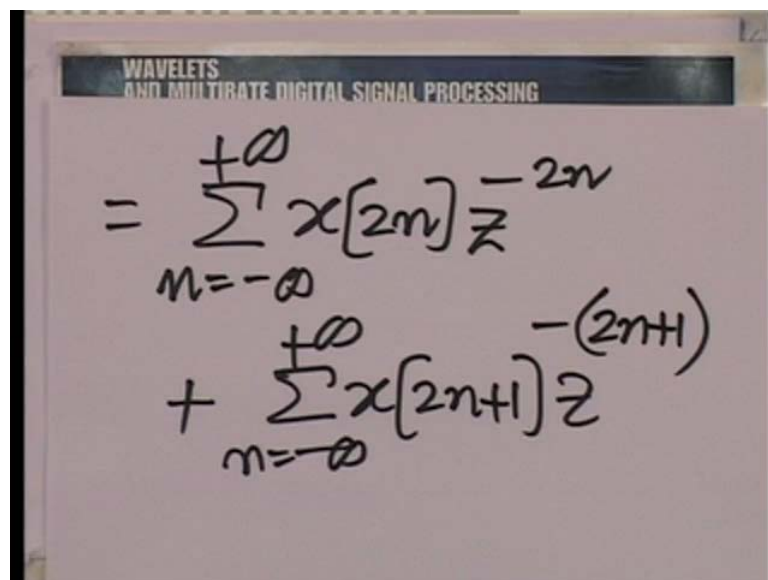 WAVELETS
AND MULTIRATE DIGITAL SIGNAL PROCESSING
+∞
= Σ x[2n] z^{-2n}
n=-∞
+∞
+ Σ x[2n+1] z^{-(2n+1)}
n=-∞